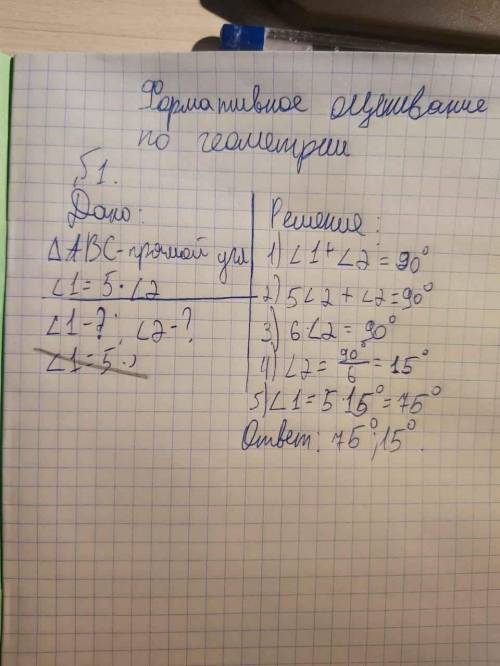 Формативное оценивание
по геометрии
№1.
Дано:
△ABC - прямой угл
∠1 = 5 · ∠2
∠1 - ?; ∠2 - ?
∠1 = 5 ·
Решение:
1) ∠1 + ∠2 = 90°
2) 5∠2 + ∠2 = 90°
3) 6 ∠2 = 90°
4) ∠2 = 90°/6 = 15°
5) ∠1 = 5 · 15° = 75°
Ответ: 75°; 15°.